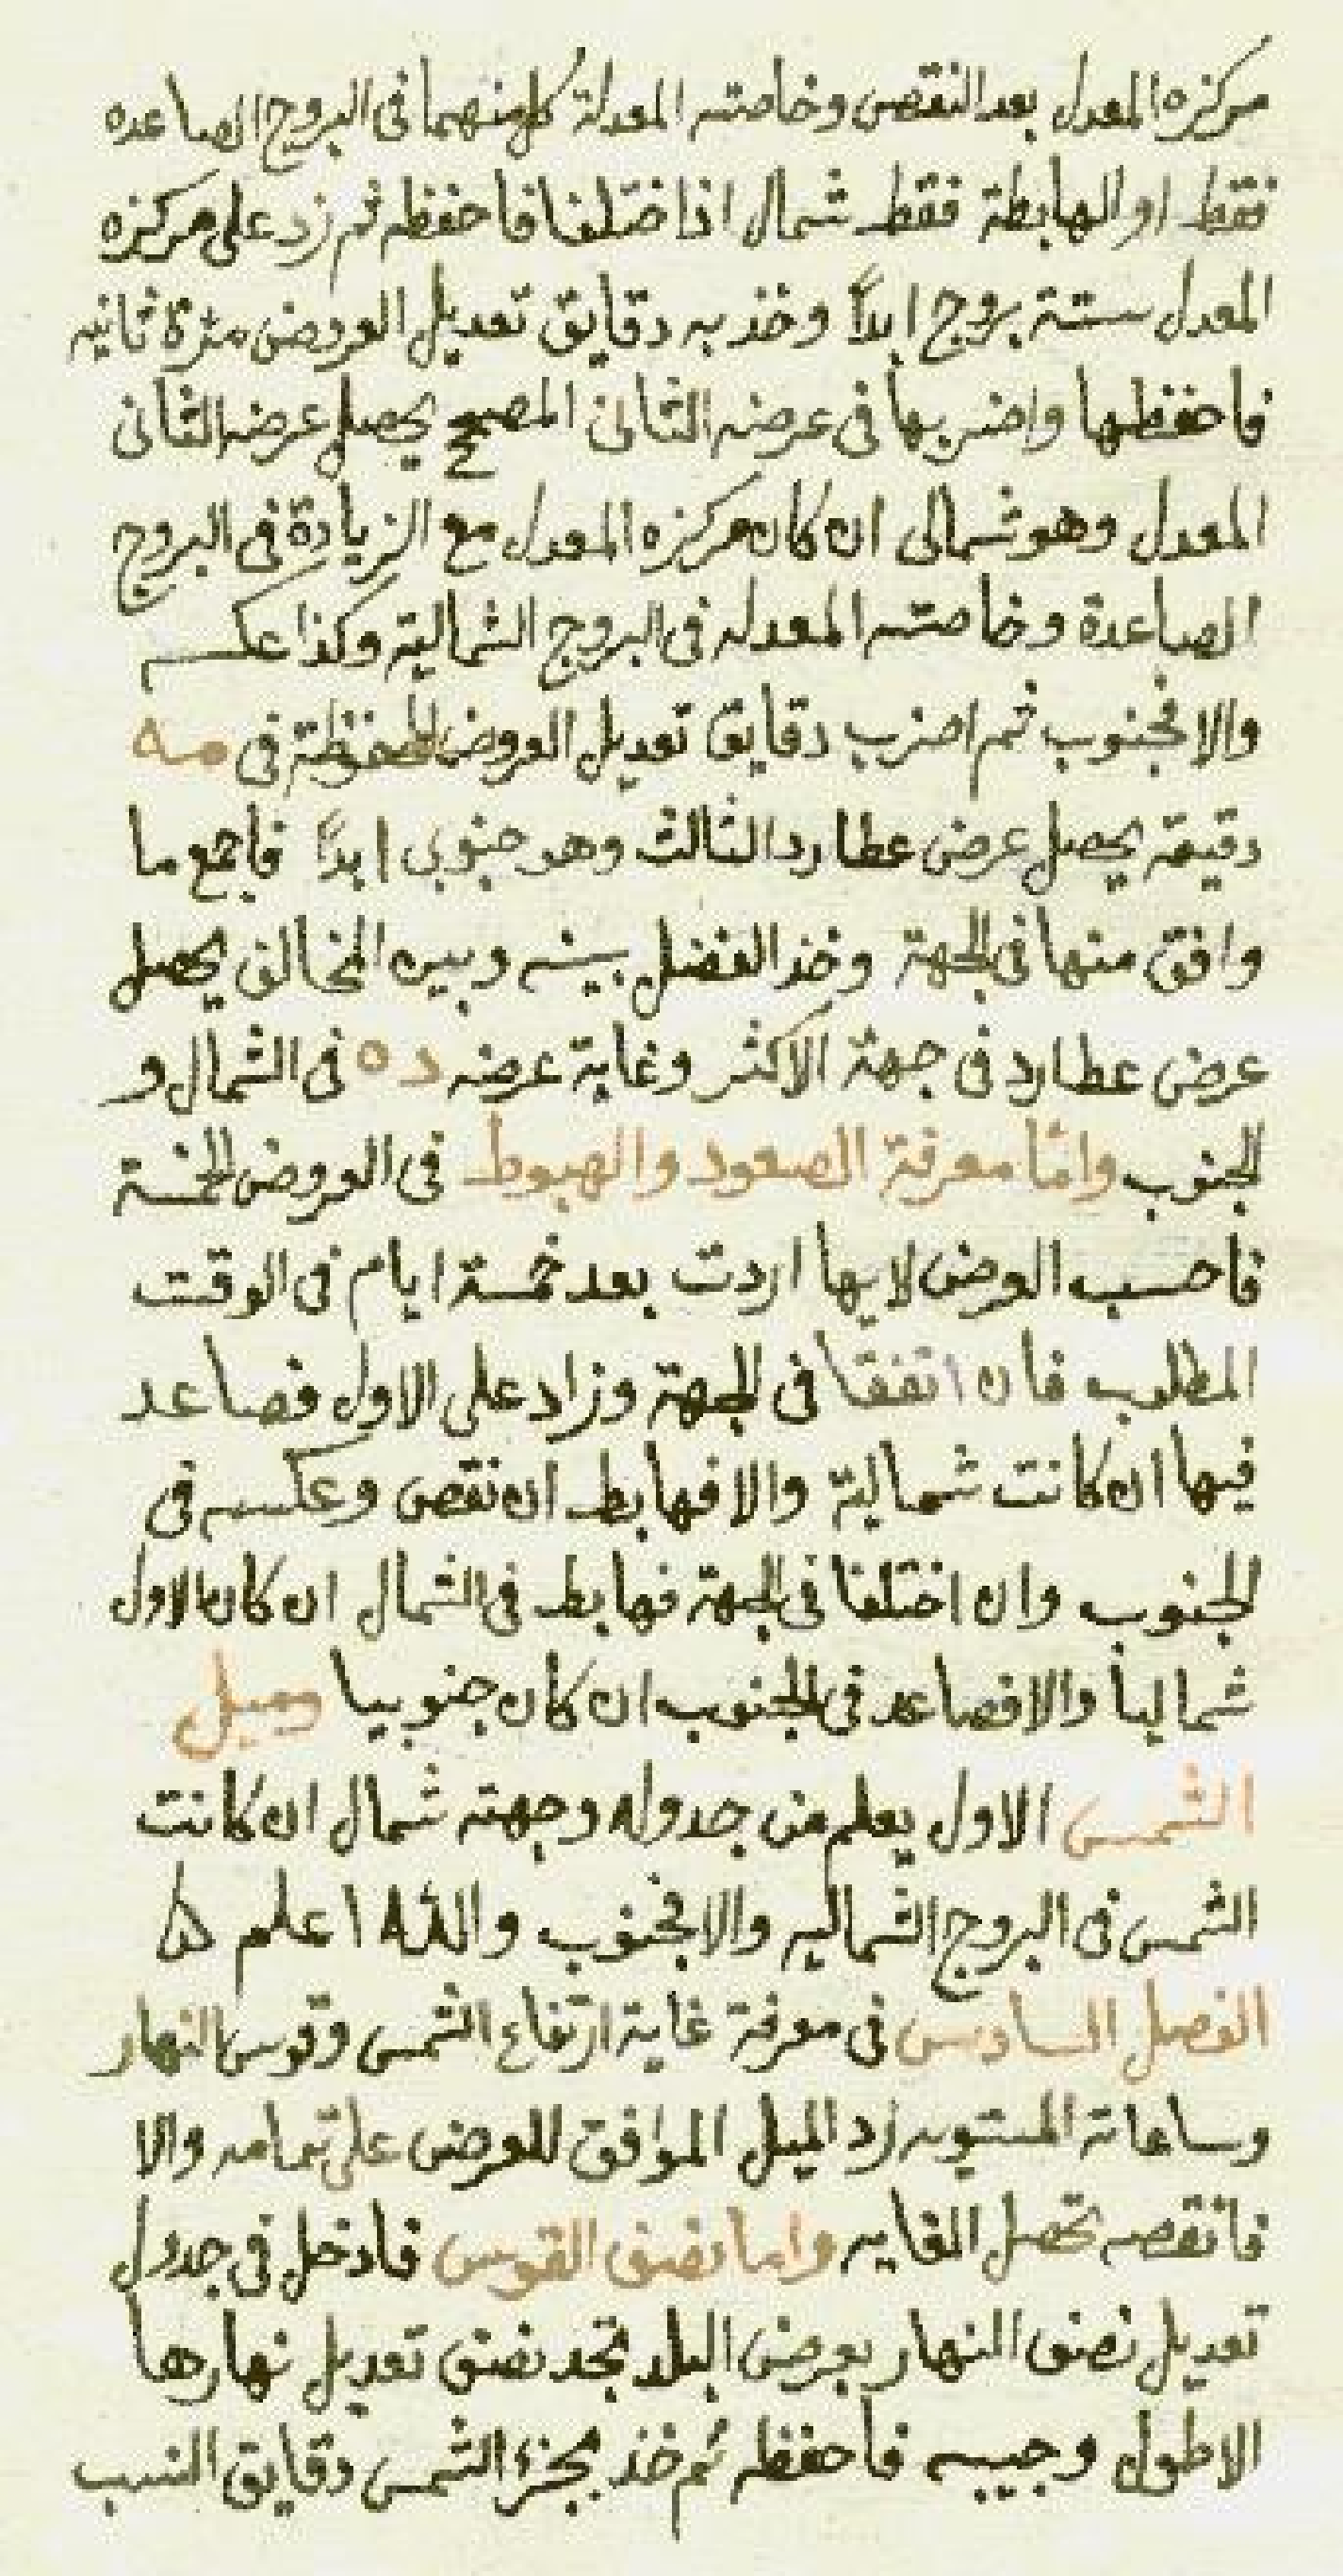 مركزه المعدل بعد النقص وخاصته المعدلة كل منهما فى البروج الصاعده
فقط او الهابطة فقط شمال اذا اختلفا فاحفظه ثم زد على مركزه
المعدل ستة بروج ابدًا وخذ به دقايق تعديل العروض مرة ثانيه
فاحفظها واضربها فى عرضه الثانى المصحح يحصل عرضه الثانى
المعدل وهو شمالى ان كان مركزه المعدل مع الزيادة فى البروج
الصاعدة وخاصته المعدله فى البروج الشمالية وكذا عكسه
والا فجنوب ثم اضرب دقايق تعديل العروض المحفوظة فى مه
دقيقة يحصل عرض عطارد الثالث وهو جنوبى ابدًا فاجمع ما
وافق منها فى الجهة وخذ الفضل بينه وبين المخالف يحصل
عرض عطارد فى جهة الاكثر وغاية عرضه د ه فى الشمال و
الجنوب وامّا معرفة الصعود والهبوط فى العروض الخمسة
فاحسب العرض لايها اردت بعد خمسة ايام فى الوقت
المطلوب فان اتفقا فى الجهة وزاد على الاول فصاعد
فيها ان كانت شمالية والا فهابط ان نقص وعكسه فى
الجنوب وان اختلفا فى الجهة فهابط فى الشمال ان كان الاول
شماليا والا فصاعد فى الجنوب ان كان جنوبيا وميل
الشمس الاول يعلم من جدوله وجهته شمال ان كانت
الشمس فى البروج الشماليه والا فجنوب والله اعلم
الفصل السادس فى معرفة غاية ارتفاع الشمس وقوس النهار
وساعاته المستويه زد الميل الموافق للعرض على تمامه والا
فانقصه تحصل الغايه واما نصف القوس فادخل فى جدول
تعديل نصف النهار بعرض البلد تجد نصف تعديل نهارها
الاطول وجيبه فاحفظه ثم خذ بجزء الشمس دقايق النسب